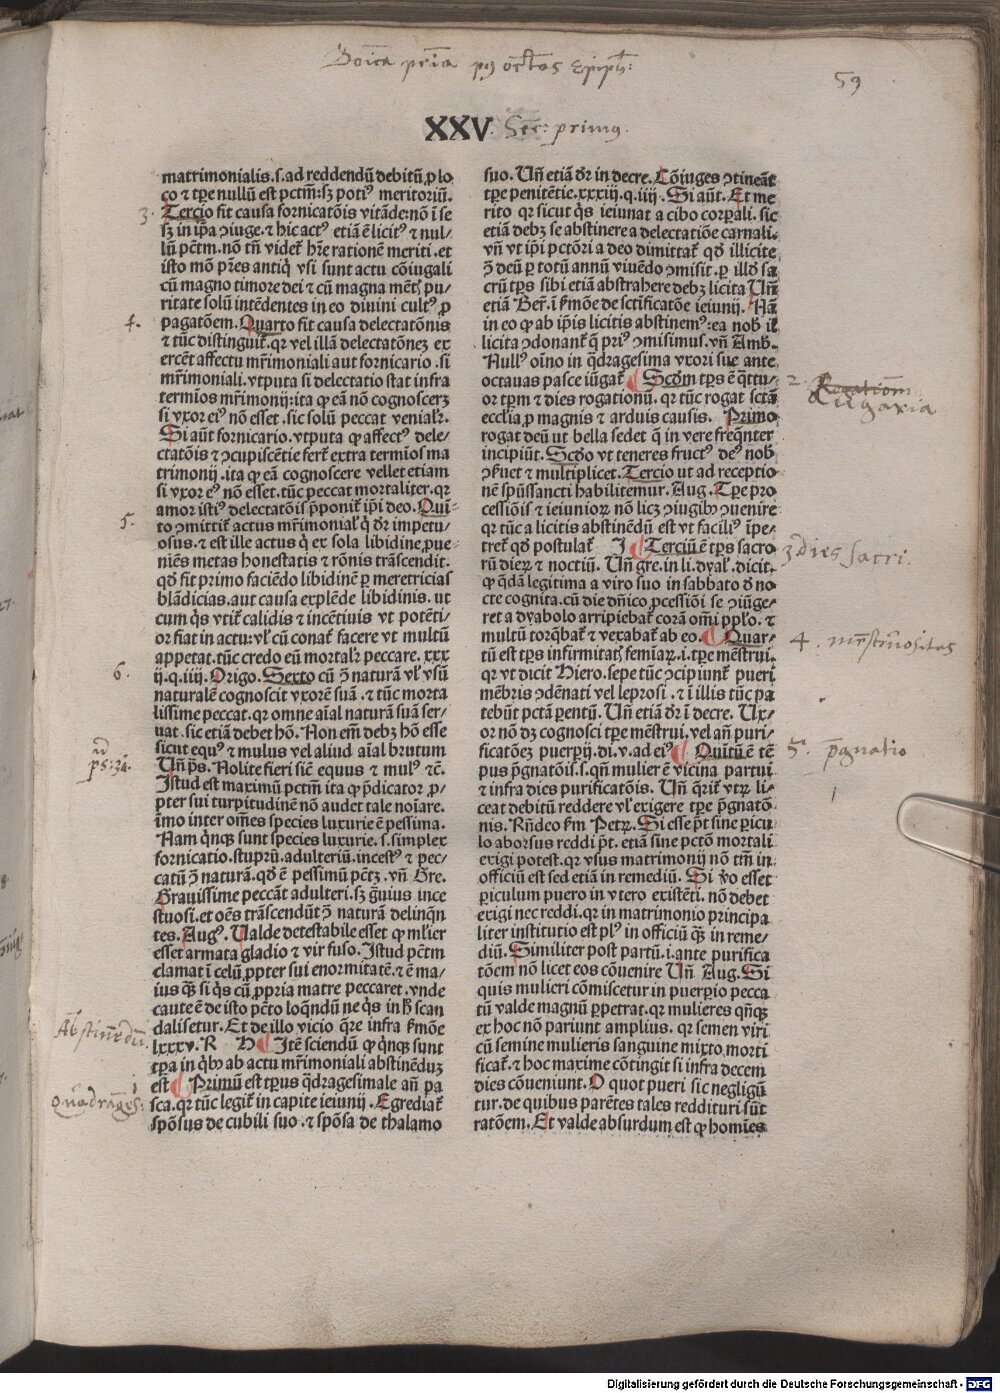 Doīca pͥma pꝰ oct̄as Epiph̄:
59
XXV. Ser: primꝰ.
matrimonialis.s.ad reddendū debitū ꝓ lo
co ⁊ tꝑe nullū est pctm̄:sꝫ potiꝰ meritoriū.
3. Tercio fit causa fornicatōis vitāde:nō ī se
sꝫ in ip̄a ↄiuge.⁊ hic actꝰ etiā ē licitꝰ ⁊ nul/
lū pctm̄.nō tn̄ videt̄ hr̄e rationē meriti.et
isto mō pr̄es antiq̄ vsi sunt actu cōiugali
cū magno timore dei ⁊ cū magna mētꝭ pu/
ritate solū intēdentes in eo diuini cultꝰ ꝓ
4. pagatōem.Quarto fit causa delectatōnis
⁊ tūc distinguit̄.qꝛ vel illā delectatōneꝫ ex
ercēt affectu mr̄imoniali aut fornicario.si
mr̄imoniali.vtputa si delectatio stat infra
termios mr̄imonij:ita ꝙ eā nō cognoscerꝫ
si vxor eiꝰ nō esset.sic solū peccat venialr̄.
Si aūt fornicario.vtputa ꝙ affectꝰ dele/
ctatōis ⁊ ↄcupiscētie fert̄ extra termīos ma
trimonij.ita ꝙ eā cognoscere vellet etiam
si vxor eꝰ nō esset.tūc peccat mortaliter.qꝛ
amor istiꝰ delectatōis p̄ponit̄ ip̄i deo.Quī-
5. to ↄmittit̄ actus mr̄imonial̄ q̄ dr̄ impetu/
osus.⁊ est ille actus q̄ ex sola libidine ꝓue/
niēs metas honestatis ⁊ rōnis trāscendit.
qd̄ fit primo faciēdo libidinē ꝑ meretricias
blādicias.aut causa explēde libidinis.ut
cum qͥs vtit̄ calidis ⁊ incētiuis vt potēti/
or fiat in actu:vl̄ cū conat̄ facere vt multū
appetat.tūc credo eū mortalr̄ peccare.xxx
6. ij.q.iiij.Origo.Sexto cū ↄ̄ naturā vl̄ vsū
naturalē cognoscit vxorē suā.⁊ tūc morta
lissime peccat.qꝛ omne aīal naturā suā ser/
uat.sic etiā debet hō.Non em̄ debꝫ hō esse
sicut equꝰ ⁊ mulus vel aliud aīal brutum
ps:31. Uñ p̄s.Nolite fieri sic̄ equus ⁊ mulꝰ ⁊c̄.
Istud est maximū pctm̄ ita ꝙ p̄dicator ꝓ/
pter sui turpitudinē nō audet tale noīare.
īmo inter om̄es species luxurie ē pessima.
Nam qͥnqꝫ sunt species luxurie.s.simplex
fornicatio.stuprū.adulteriū.incestꝰ ⁊ pec/
catū ↄ̄ naturā.qd̄ ē pessimū pctꝫ.vn̄ Gre.
Grauissime peccāt adulteri.sꝫ ḡuius ince
stuosi.et oēs trāscendūt ↄ̄ naturā delinqn̄
tes.Augꝰ.Ualde detestabile esset ꝙ ml̄ier
esset armata gladio ⁊ vir fuso.Istud pctm̄
clamat ī celū ꝓpter sui enormitatē.⁊ ē ma/
ius qͣꝫ si qͥs cū ꝓpria matre peccaret.vnde
caute ē de isto pctō loqn̄dū ne qͥs in h̄ scan
Abstinēdū. dalisetur.Et de illo vicio qr̄e infra f̄mōe
lxxxv.R H Itē sciendū ꝙ qͥnqꝫ sunt
tꝑa in qͥbꝰ ab actu mr̄imoniali abstinēduꝫ
Quadrages: est Primū est tꝑus qͣdragesimale an̄ pa
sca.qꝛ tūc legit̄ in capite ieiunij.Egrediat̄
spōsus de cubili suo.⁊ spōsa de thalamo
suo.Un̄ etiā dr̄ in decre.Cōiuges ↄtineāt
tꝑe penitētie.xxxiij.q.iiij.Si aūt.Et me
rito qꝛ sicut qͥs ieiunat a cibo corꝑali.sic
etiā debꝫ se abstinere a delectatiōe carnali.
vn̄ vt ip̄i pctōri a deo dimittat̄ qd̄ illicite
ↄ̄ deū ꝑ totū annū viuēdo ↄmisit.ꝑ illd̄ sa
crū tꝑs sibi etiā abstrahere debꝫ licita Un̄
etiā Ber.ī f̄mōe de sctificatōe ieiunij.Nā
in eo ꝙ ab ip̄is licitis abstinemꝰ:ea nob̄ il
licita ↄdonant̄ q̄ priꝰ ↄmisimus.vn̄ Amb.
Nullꝰ oīno in qͣdragesima vxori sue ante
octauas pasce iūgat̄ Scd̄m tꝑs ē qͣttu/
2. Rogationū Lugaria
or tꝑm ⁊ dies rogationū.qꝛ tūc rogat sctā
ecclīa ꝓ magnis ⁊ arduis causis. Primo
rogat deū ut bella sedet q̄ in vere freqn̄ter
incipiūt.Scd̄o vt teneres fructꝰ deꝰ nob̄
ↄẜuet ⁊ multiplicet.Tercio ut ad receptio
nē spūssancti habilitemur.Aug.Tꝑe pro
cessiōis ⁊ ieiunioꝝ nō licꝫ ↄiugibꝰ ↄuenire
qꝛ tūc a licitis abstinēdū est vt faciliꝰ īpe/
tret̄ qd̄ postulat̄ I Terciū ē tꝑs sacro
3 dies sacri.
rū dieꝝ ⁊ noctiū.Un̄ gre.in li.dyal̄.dicit.
ꝙ qͣdā legitima a viro suo in sabbato d̄ no
cte cognita.cū die dn̄ico ꝓcessiōi se ↄiūge/
ret a dyabolo arripiebat̄ corā om̄i pplo.⁊
multū torqͣbat̄ ⁊ vexabat̄ ab eo. Quar/
4. menstruositas
tū est tꝑs infirmitatꝭ femīaꝝ.i.tꝑe mēstrui.
qꝛ vt dicit Hiero.sepe tūc ↄcipiunt̄ pueri
mēbris ↄdēnati vel leprosi.⁊ ī illis tūc pa
tebūt pctā ꝑentū.Un̄ etiā dr̄ ī decre.Ux/
or nō dꝫ cognosci tꝑe mēstrui,vel an̄ puri/
ficatōeꝫ puerꝑij.di.v.ad eiꝰ Quītū ē tē
5. p̄gnatio
pus p̄gnatōis.s.qn̄ mulier ē vicina partui
⁊ infra dies purificatōis.Un̄ qͥrit̄ vtꝝ li/
ceat debitū reddere vl̄ exigere tꝑe p̄gnatō
nis.Rn̄deo ẜm Petꝝ.Si esse p̄t sine ꝑicu
lo aborsus reddi p̄t.etiā sine pctō mortali
exigi potest.qꝛ vsus matrimonij nō tm̄ in
officiū est sed etiā in remediū.Si ỽo esset
ꝑiculum puero in vtero existēti.nō debet
exigi nec reddi.qꝛ in matrimonio principa
liter institutio est plꝰ in officiū qͣꝫ in reme/
diū.Similiter post partū.i.ante purifica
tōem nō licet eos cōuenire Un̄ Aug.Si
quis mulieri cōmiscetur in puerꝑio pecca
tū valde magnū ꝑpetrat.qꝛ mulieres qn̄qꝫ
ex hoc nō pariunt amplius.qꝛ semen viri
cū semine mulieris sanguine mixto.morti
ficat̄.⁊ hoc maxime cōtingit si infra decem
dies cōueniunt.O quot pueri sic negligū
tur.de quibus parētes tales reddituri sūt
ratōem.Et valde absurdum est ꝙ homīes
Digitalisierung gefördert durch die Deutsche Forschungsgemeinschaft - DFG